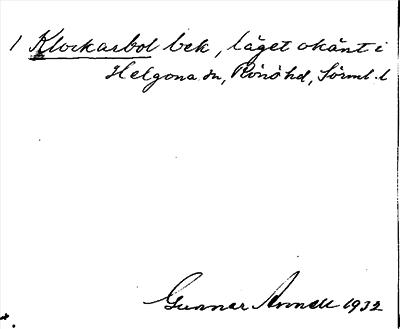 1 Klockarbol bek, läget okänt i
Helgona sn, Rönö hd, Sörml. l
Gunnar Annell 1932